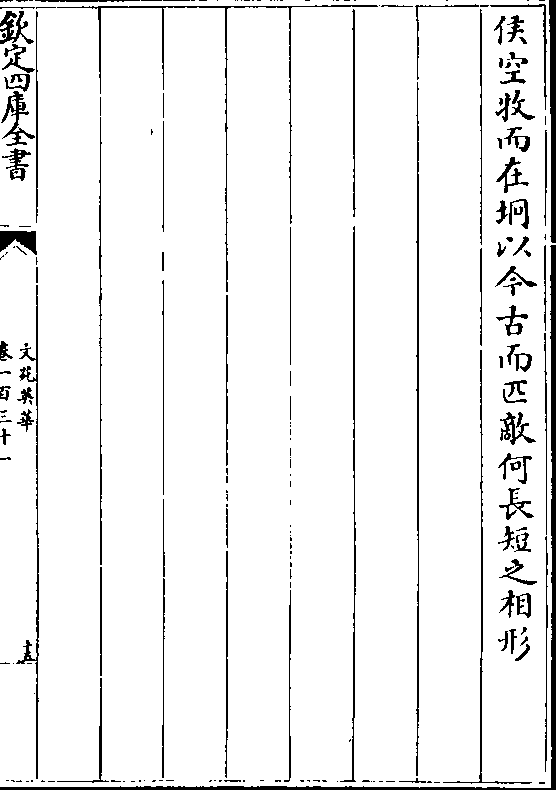 侯空牧而在坰以今古而匹敵何長短之相形
欽定四庫全書
文苑英華
卷一百三十一
十五